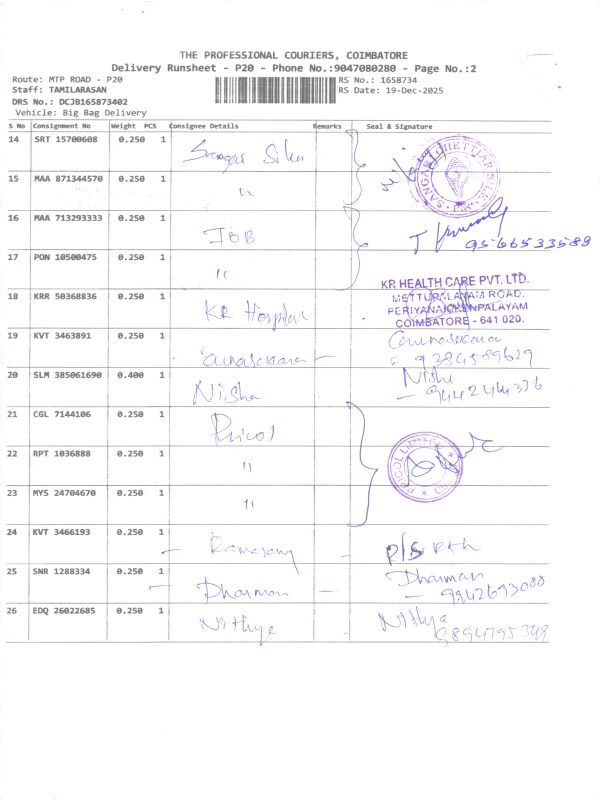 THE PROFESSIONAL COURIERS, COIMBATORE
Delivery Runsheet - P20 - Phone No.:9047080280 - Page No.:2
Route: MTP ROAD - P20
Staff: TAMILARASAN
DRS No.: DCJB165873402
Vehicle: Big Bag Delivery
RS No.: 1658734
RS Date: 19-Dec-2025
S No Consignment No Weight PCS Consignee Details Remarks Seal & Signature
14 SRT 15700608 0.250 1
15 MAA 871344570 0.250 1 "
16 MAA 713293333 0.250 1 IOB
9566533588
17 PON 10500475 0.250 1 "
18 KRR 50368836 0.250 1 KR Hospital
KR HEALTH CARE PVT. LTD.
METTUPALAYAM ROAD.
PERIYANAICKENPALAYAM
COIMBATORE - 641 020.
19 KVT 3463891 0.250 1
20 SLM 385061690 0.400 1 Nisha Nisha
21 CGL 7144106 0.250 1 Pricol
PRICOL LIMITED
22 RPT 1036888 0.250 1 "
23 MYS 24704670 0.250 1 "
24 KVT 3466193 0.250 1 - Ramasamy -
25 SNR 1288334 0.250 1 - Dharman - Dharman
- 9842693088
26 EDQ 26022685 0.250 1 Nithya Nithya